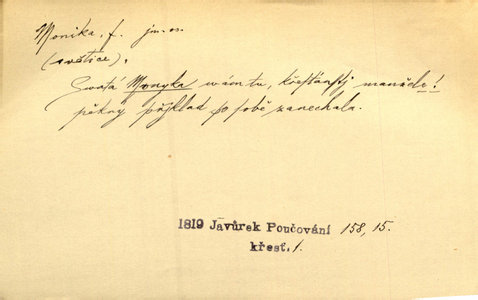 Monika, f. jm. os.
(světice).
Svatá Monyka wám tu, křesťanſſtj manžele!
pěkný přjklad po sobě zanechala.
1819 Javůrek Poučování 158, 15.
křesť. 1.